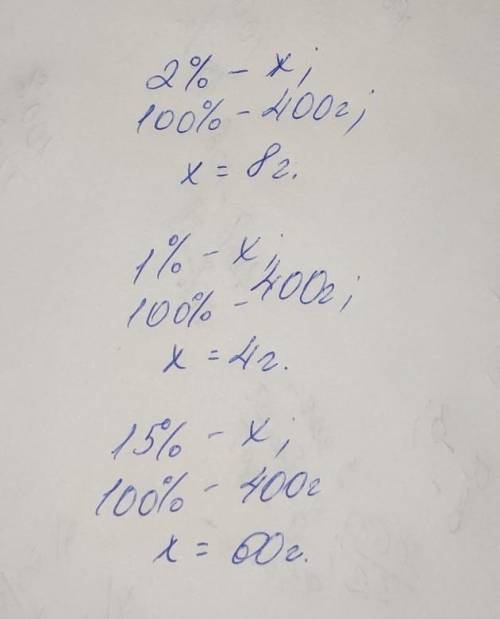 2% - x;
100% - 400г;
x = 8г.
1% - x;
100% - 400г;
x = 4г.
15% - x;
100% - 400г
x = 60г.